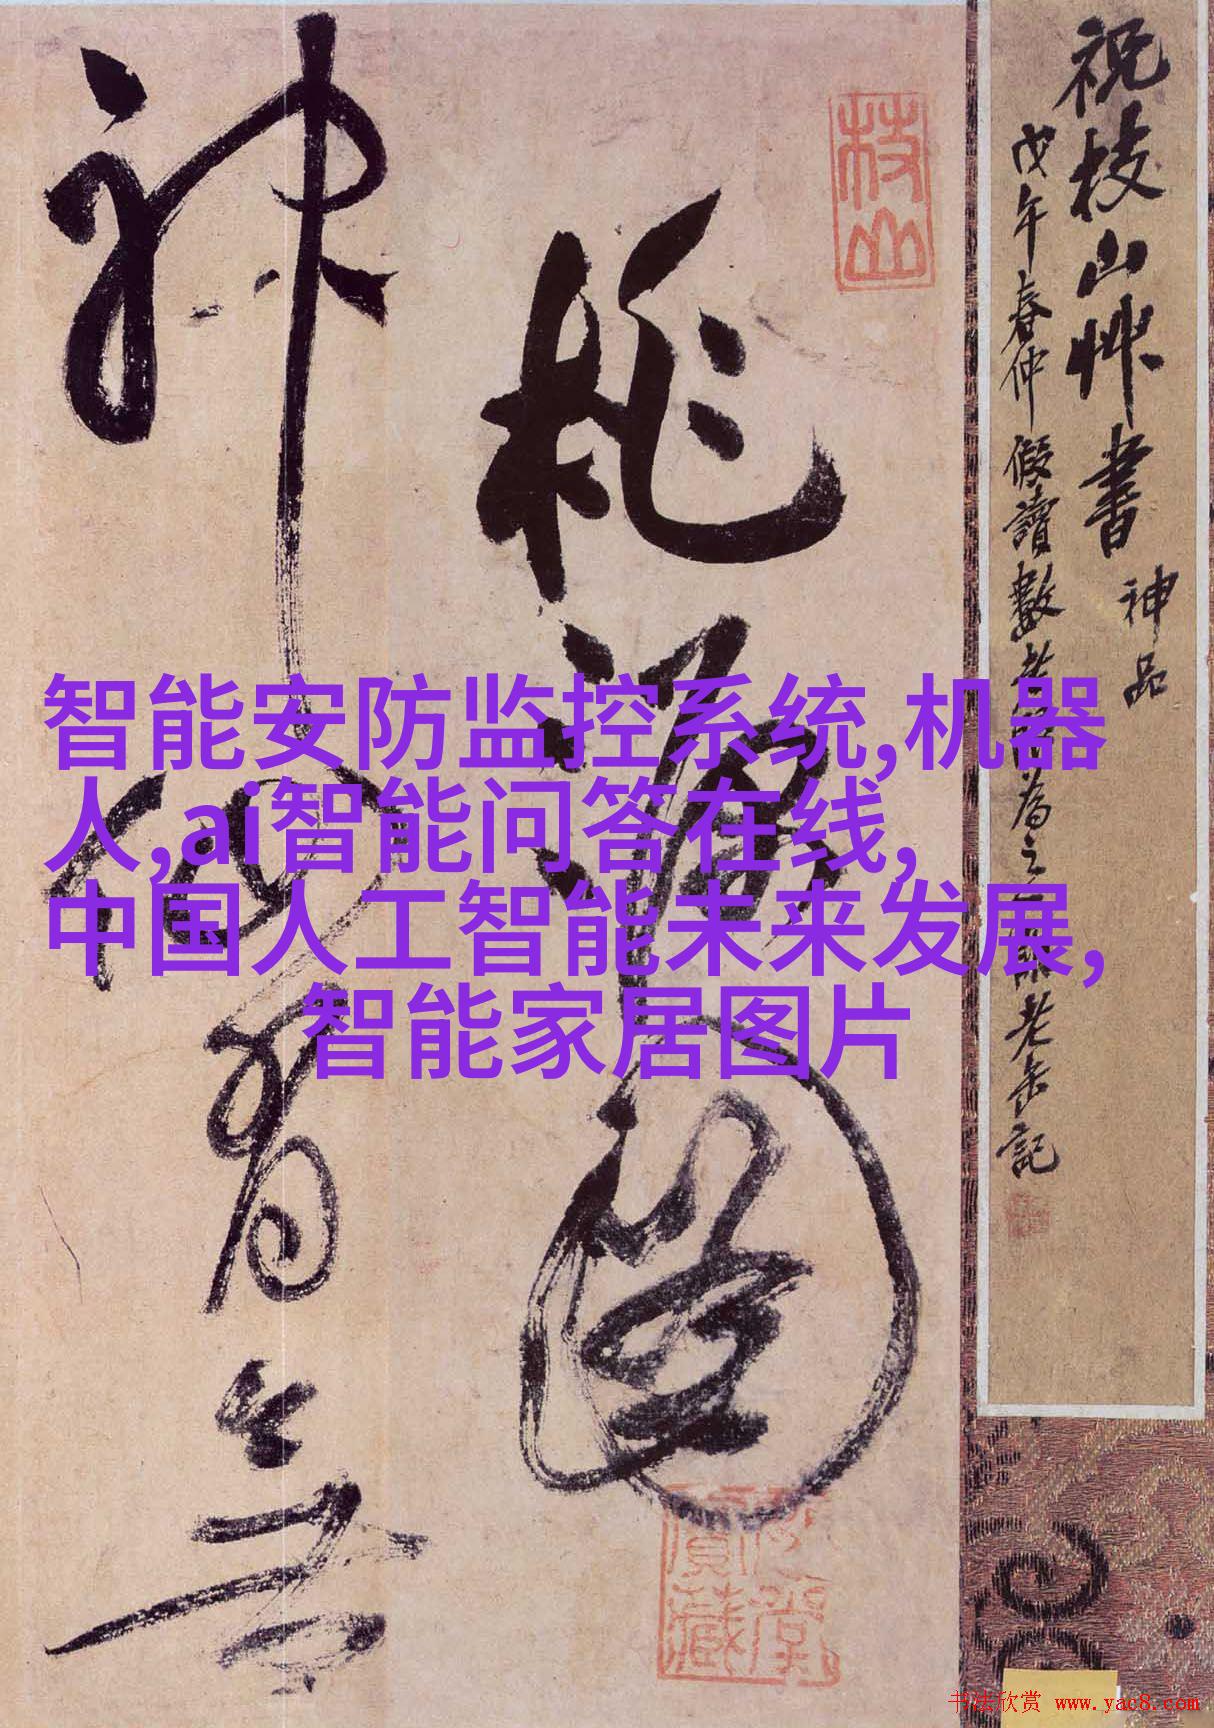 祝枝山艸書
神品
戊午春仲假讀數
為之
老缶記
枝山
桃源圖
神仙有無
智能安防监控系统,机器
人,ai智能问答在线,
中国人工智能未来发展,
智能家居图片
书法欣赏 www.yac8.com